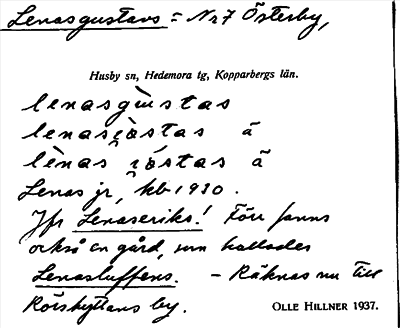 Lenasgustavs = Nr 7 Österby,
Husby sn, Hedemora tg, Kopparbergs län.
lenasgùstas
lenas i̯östas ä
lènas i̯östas ä
Lenas jr, kb 1920.
Jfr Lenaseriks! Förr fanns
också en gård, som kallades
Lenasluffens. – Räknas nu till
Rörshyttans by.
OLLE HILLNER 1937.